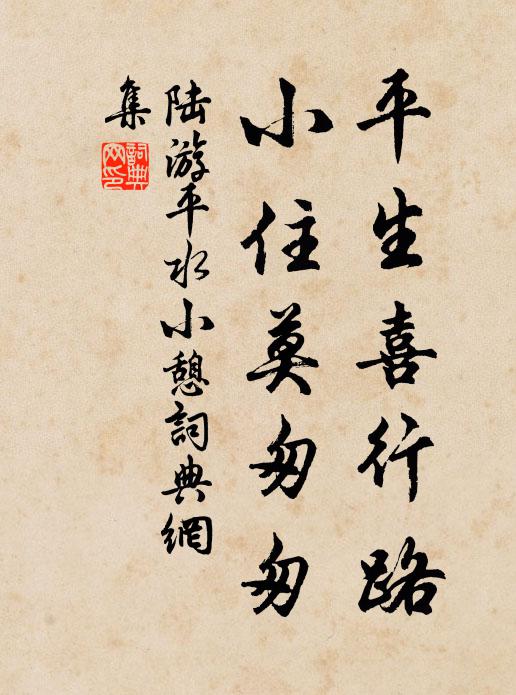 平生喜行路
小住莫匆匆
陆游平水小憩詞典網
集
詞典
网印